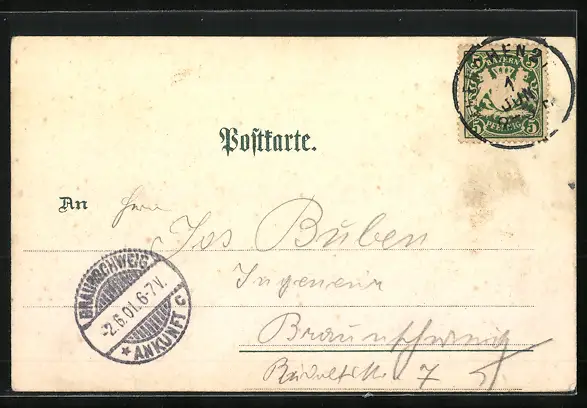 BAYERN
5 5
PFENNIG
MÜNCHEN 2
1
JUN
Postkarte.
An Herrn
Jos Buben
Ingenieur
Braunschweig
7
BRAUNSCHWEIG
-2.6.01.6-7V.
* ANKUNFT C